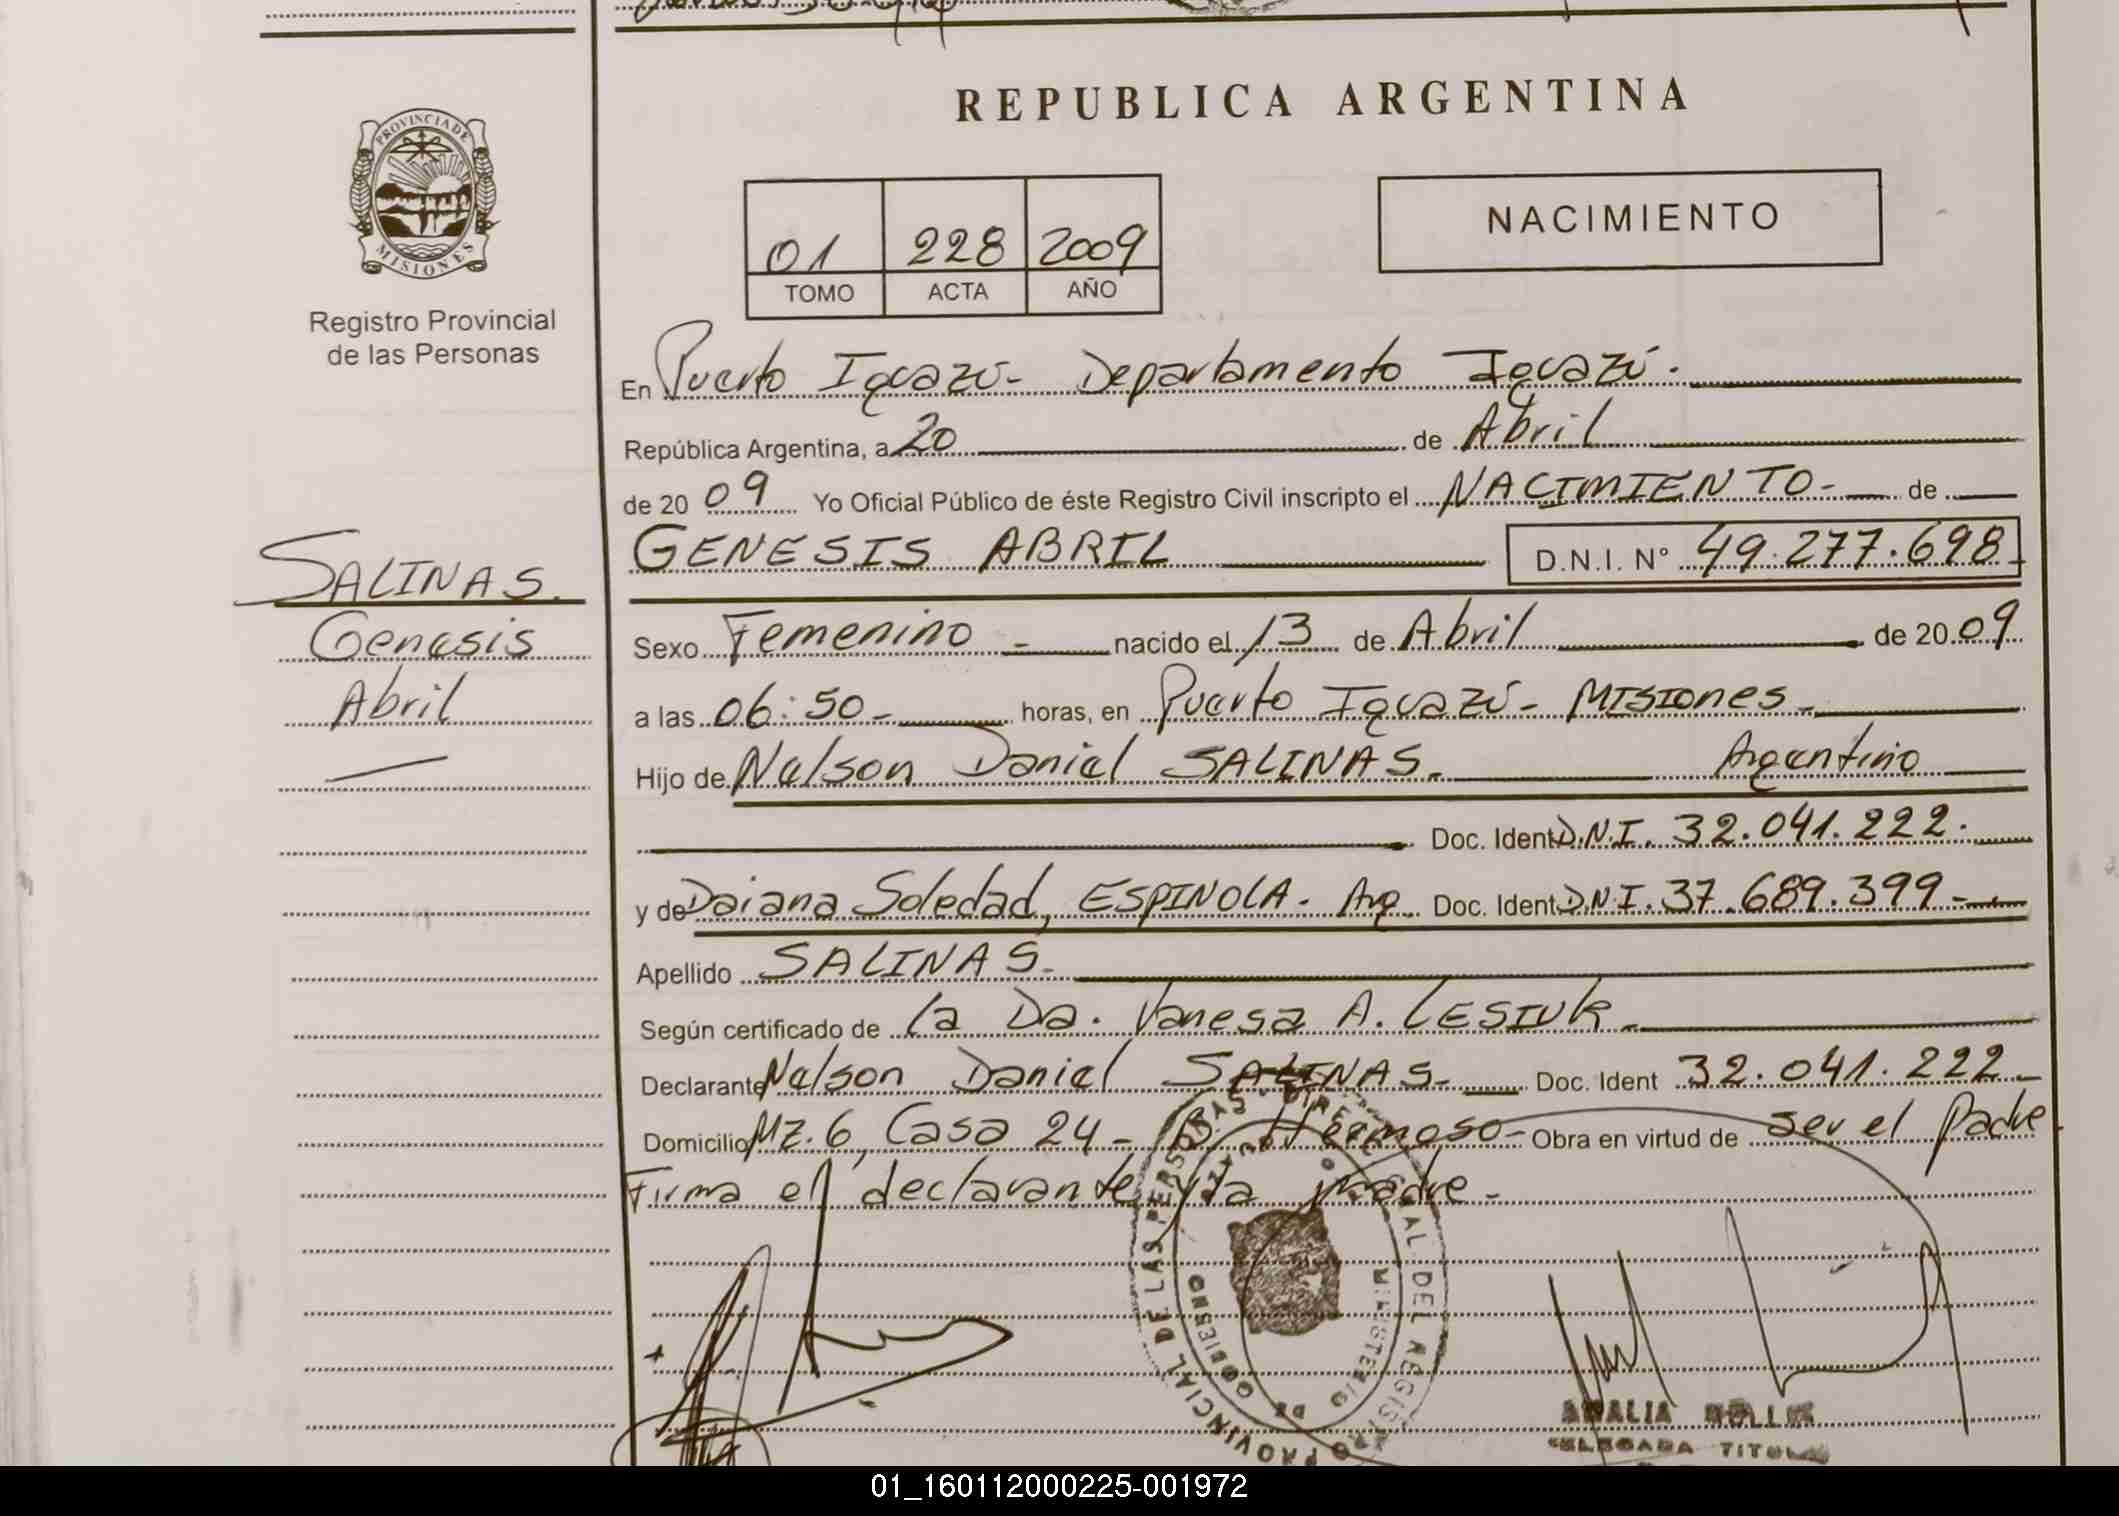 REPUBLICA ARGENTINA
PROVINCIA DE
MISIONES
Registro Provincial
de las Personas
01 228 2009
TOMO ACTA AÑO
NACIMIENTO
En Puerto Iguazú- Departamento Iguazú.
República Argentina, a 20 de Abril
de 20 09 Yo Oficial Público de éste Registro Civil inscripto el NACIMIENTO- de
GENESIS ABRIL D.N.I. N° 49.277.698
SALINAS.
Genesis
Abril
Sexo Femenino - nacido el 13 de Abril de 20 09
a las 06:50- horas, en Puerto Iguazú- MISIONES-
Hijo de Nelson Daniel SALINAS. Argentino
Doc. Ident D.N.I. 32.041.222.
y de Daiana Soledad, ESPINOLA. Arg. Doc. Ident D.N.I. 37.689.399-
Apellido SALINAS-
Según certificado de la Da. Vanesa A. LESIUK-
Declarante Nelson Daniel SALINAS- Doc. Ident 32.041.222-
Domicilio Mz. 6, Casa 24- B° Hermoso- Obra en virtud de ser el padre
Firma el declarante y la madre-
PROVINCIAL DE LAS PERSONAS - DIREC. GRAL. DEL REGISTRO
MINISTERIO DE GOBIERNO
AMALIA
DELEGADA TITULAR
01_160112000225-001972